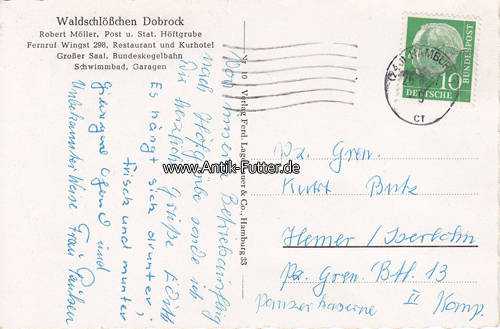 Waldschlößchen Dobrock
Robert Möller, Post u. Stat. Höftgrube
Fernruf Wingst 298, Restaurant und Kurhotel
Großer Saal, Bundeskegelbahn
Schwimmbad, Garagen
Nr. 10 Verlag Ferd. Lagerbauer & Co., Hamburg 33
DEUTSCHE BUNDESPOST
10
(24a) HAMBURG
cf
Von unserem Betriebsausflug
nach Höftgrube sende ich
Dir herzliche Grüße Edith
Es hängt sich drunter,
frisch und munter
und
Unbekannter Weise Frau Paulsen
www.Antik-Futter.de
Pz. Gren.
Kurt
Hemer / Iserlohn
Pz. Gren. Btl. 13
Panzerkaserne II Komp.